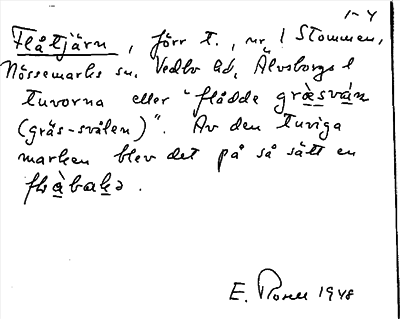 1-4
Flåtjärn, förr t., nr. 1 Stommen,
Nössemarks sn. Vedbo hd, Älvsborgs l
tuvorna eller "flådde græsván
(gräs-svålen)". Av den tuviga
marken blev det på så sätt en
1948